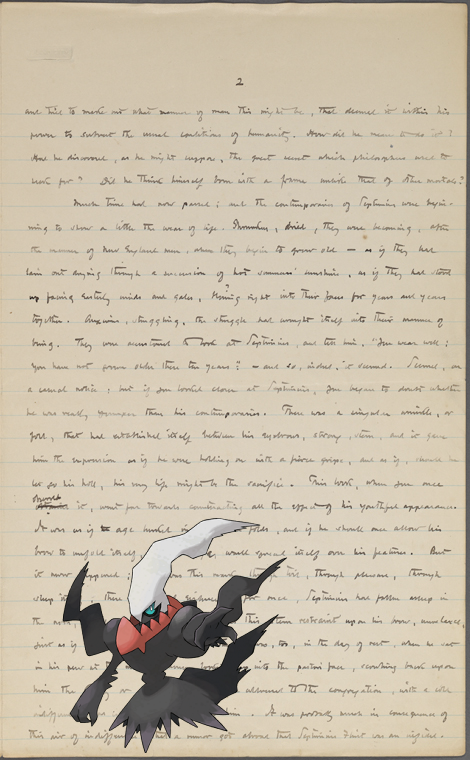 2
and tried to make out what manner of man this might be, that deemed it within his
power to subvert the usual conditions of humanity. How did he mean to do it?
Had he discovered, as he might suppose, the great secret which philosophers used to
seek for? Did he think himself born with a frame unlike that of other mortals?
Much time had now passed; and the contemporaries of Septimius were begin-
ning to show a little the wear of life. dried, they were becoming, after
the manner of New England men, when they begin to grow old — as if they had
lain out drying through a succession of hot summers' sunshine, as if they had stood
up facing wintry winds and gales, right into their faces for years and years
together. Anxious, struggling, the struggle had wrought itself into their manner of
being. They were accustomed to look at Septimius, and tell him, "You wear well;
you have not grown older these ten years"; — and so, indeed, it seemed. Seemed, on
a casual notice; but if you looked closer at Septimius, you began to doubt whether
he was really younger than his contemporaries. There was a singular wrinkle, or
fold, that had established itself between his eyebrows, strong, stern, and it gave
him the expression as if he were holding on with a fierce gripe, and as if, should he
let go his hold, his very life might be the sacrifice. This look, when you once
observed
it, went far towards counteracting all the effect of his youthful appearance.
It was as if age in folds, and if he should once allow his
brow to unfold itself, would spread itself over his features. But
it never happened this mark, through toil, through pleasure, through
sleep there for once, Septimius had fallen asleep in
the this stern restraint upon his brow,
just as if too, in the day of rest, when he sat
in his pew at the look up into the pastor's face, scowling back upon
him the or addressed to the congregation, with a cold
in. It was probably much in consequence of
this air of indifference that a rumor got abroad that Septimius Felton was an infidel.